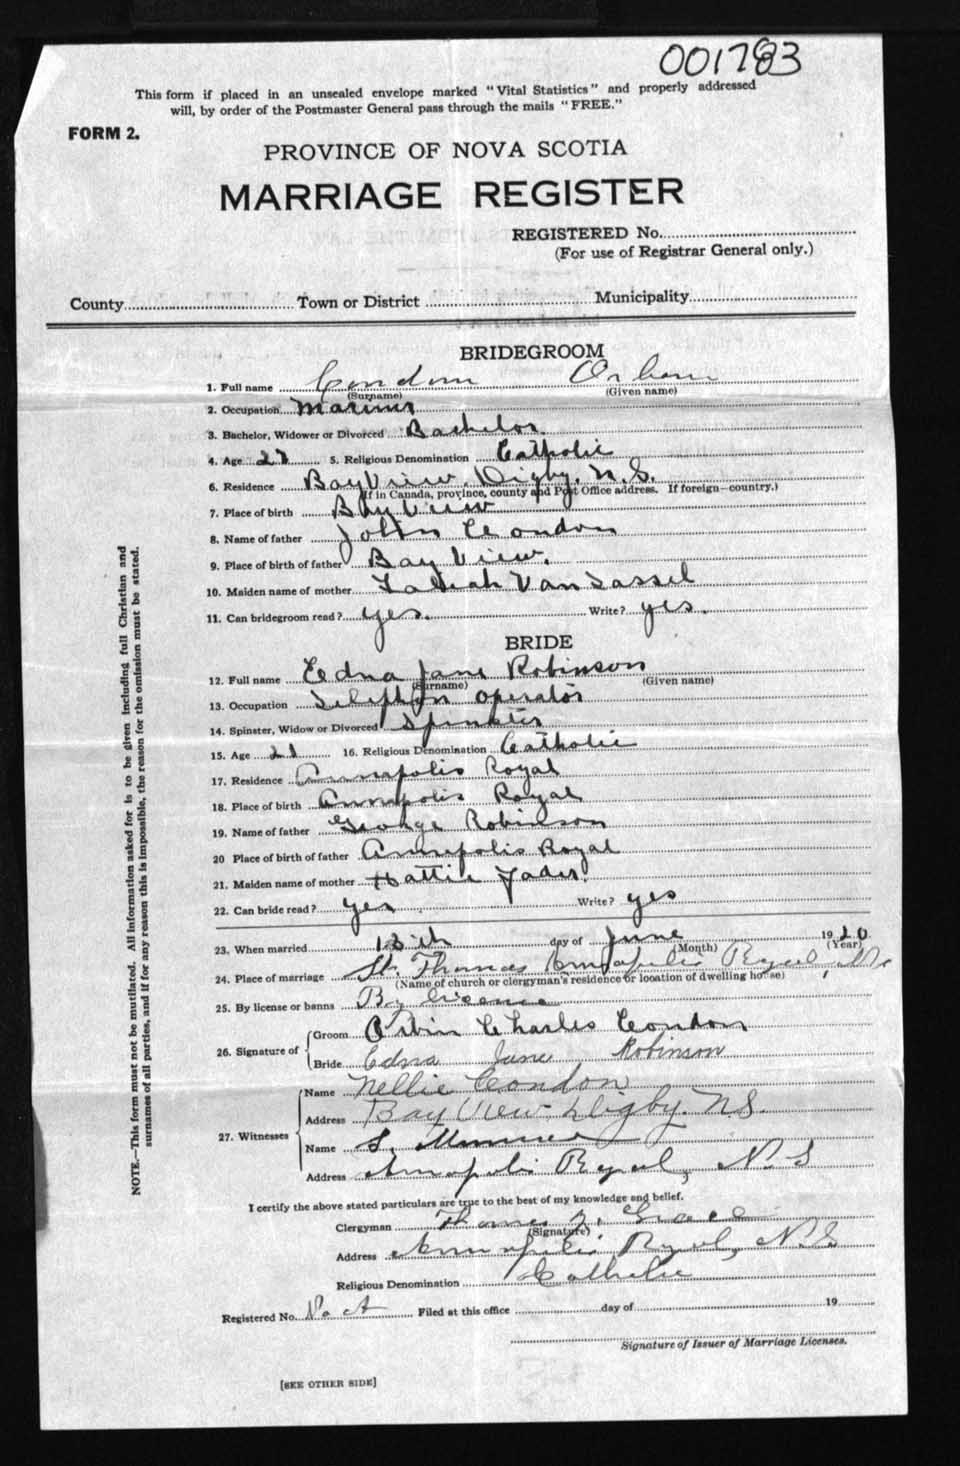 001783
This form if placed in an unsealed envelope marked "Vital Statistics" and properly addressed
will, by order of the Postmaster General pass through the mails "FREE."
FORM 2.
PROVINCE OF NOVA SCOTIA
MARRIAGE REGISTER
REGISTERED No.
(For use of Registrar General only.)
County Town or District Municipality
BRIDEGROOM
1. Full name Condon
(Surname) (Given name)
2. Occupation Mariner
3. Bachelor, Widower or Divorced Bachelor
4. Age 5. Religious Denomination Catholic
6. Residence Bay View, Digby, N.S.
(If in Canada, province, county and Post Office address. If foreign—country.)
7. Place of birth Bay View
8. Name of father John Condon
9. Place of birth of father Bay View.
10. Maiden name of mother Van Tassel
11. Can bridegroom read? yes. Write? yes.
BRIDE
12. Full name Edna Jane Robinson
(Surname) (Given name)
13. Occupation operator
14. Spinster, Widow or Divorced Spinster
15. Age 21 16. Religious Denomination Catholic
17. Residence Annapolis Royal
18. Place of birth Annapolis Royal
19. Name of father George Robinson
20 Place of birth of father Annapolis Royal
21. Maiden name of mother Hattie
22. Can bride read? yes Write? yes
23. When married day of June 1920
(Month) (Year)
24. Place of marriage St. Thomas Annapolis Royal, N.S
(Name of church or clergyman's residence or location of dwelling house)
25. By license or banns By license
26. Signature of
Groom Orbin Charles Condon
Bride Edna Jane Robinson
27. Witnesses
Name Nellie Condon
Address Bay View Digby. N.S.
Name S.
Address Annapolis Royal, N.S
I certify the above stated particulars are true to the best of my knowledge and belief.
Clergyman Thomas J. Grace
(Signature)
Address Annapolis Royal, N.S
Religious Denomination Catholic
Registered No. Filed at this office day of 19
Signature of Issuer of Marriage Licenses.
[SEE OTHER SIDE]
NOTE.—This form must not be mutilated. All information asked for is to be given including full Christian and
surnames of all parties, and if for any reason this is impossible, the reason for the omission must be stated.